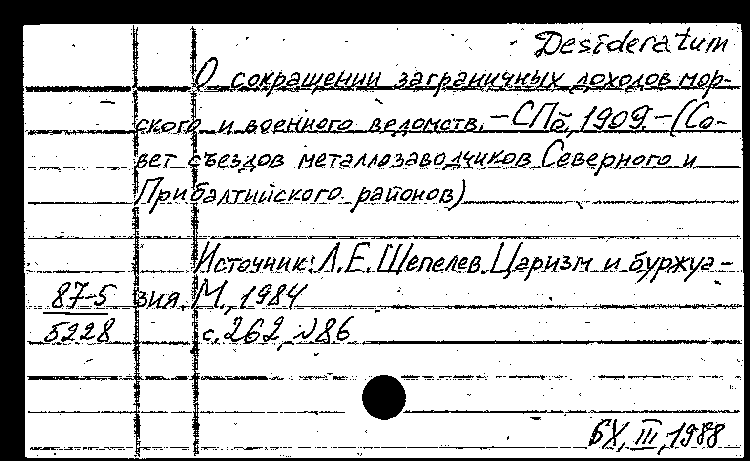 Desideratum
О сокращении заграничных доходов мор-
ского и военного ведомств. – СПб, 1909. – (Со-
вет съездов металлозаводчиков Северного и
Прибалтийского районов)
Источник: Л.Е. Шепелев. Царизм и буржуа-
87-5 зия. М., 1984
5228 с. 262, №86
БХ, III, 1988